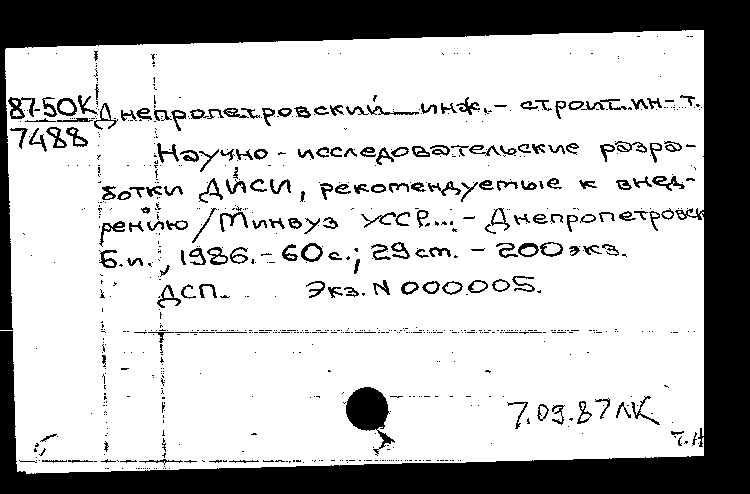 87-50К Днепропетровский инж.- строит. ин-т.
7488
Научно - исследовательские разра-
ботки ДИСИ, рекомендуемые к внед-
рению / Минвуз УССР...- Днепропетровск
Б.и., 1986.- 60 с.; 29 ст. - 200 экз.
ДСП. Экз. N 000005.
7.09.87 ЛК